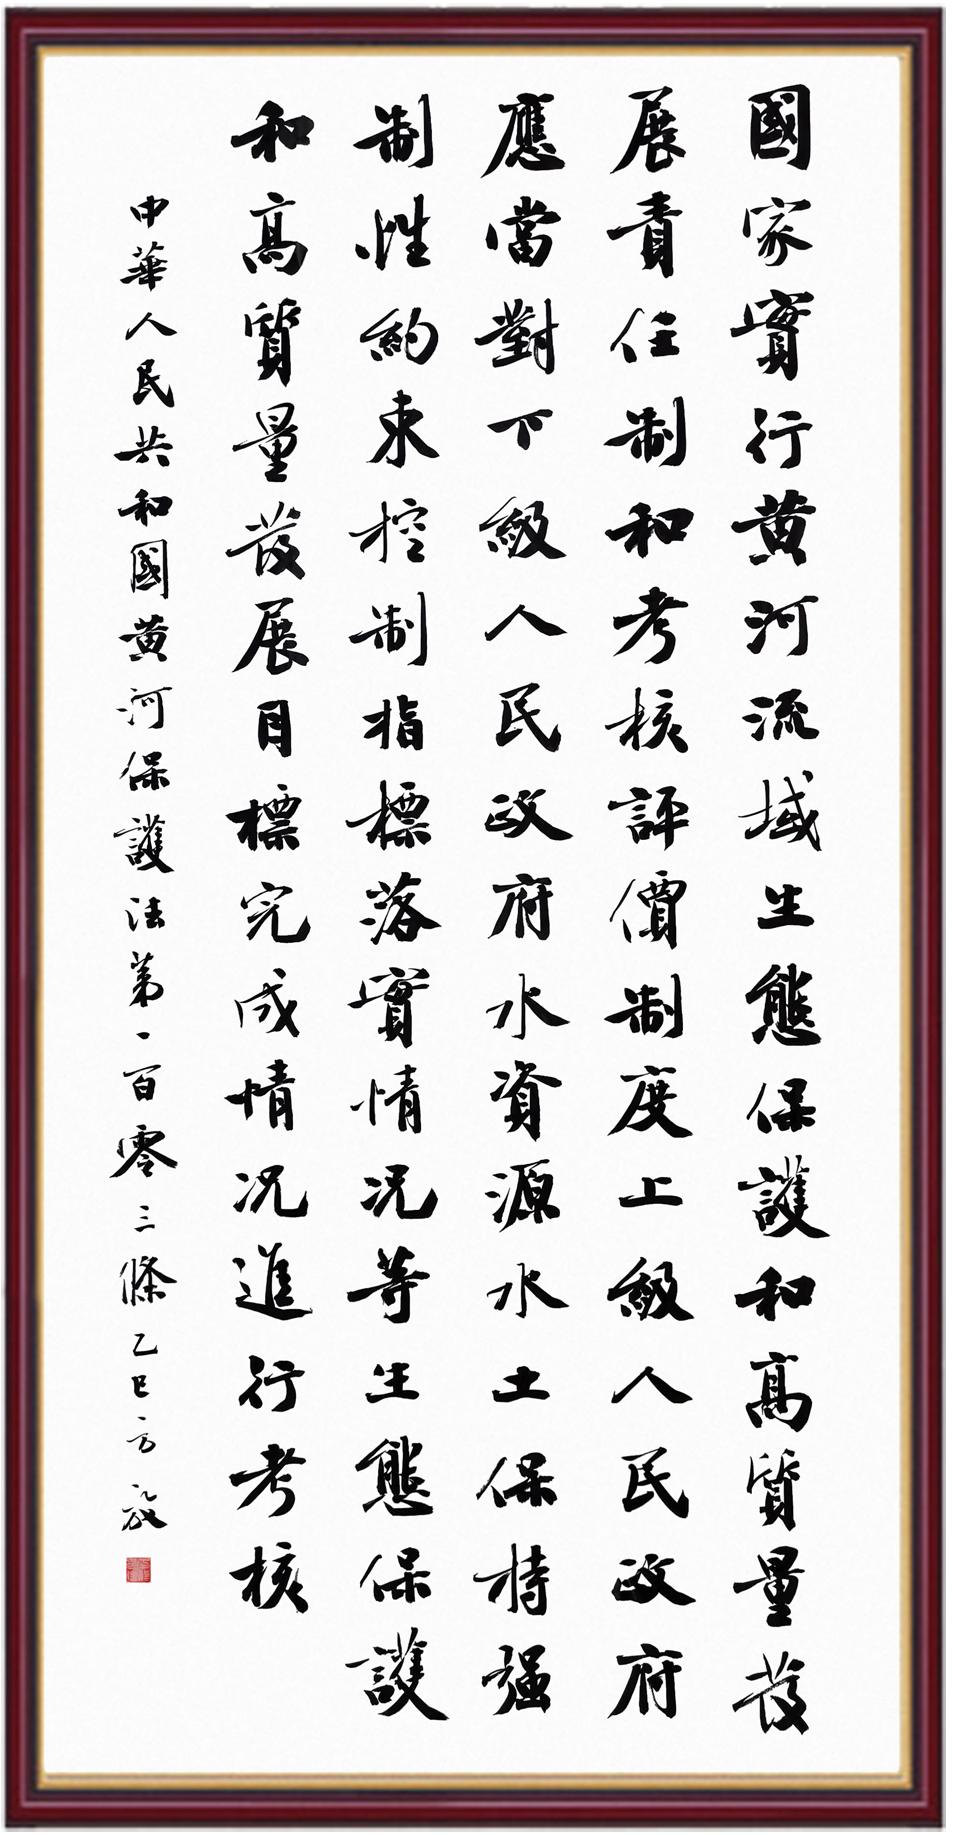 國家實行黄河流域生態保護和高質量發
展責任制和考核評價制度上級人民政府
應當對下級人民政府水資源水土保持强
制性約束控制指標落實情况等生態保護
和高質量發展目標完成情况進行考核
中華人民共和國黄河保護法第一百零三條乙巳方放